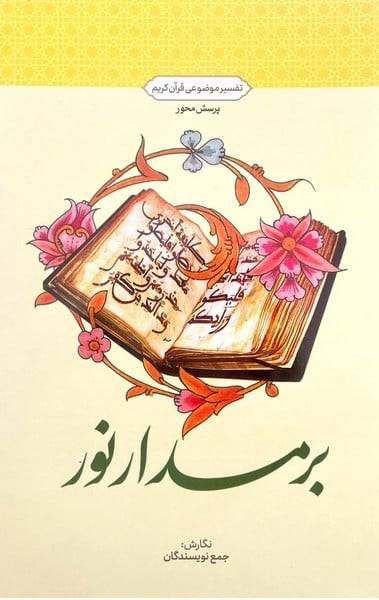 تفسیر موضوعی قرآن کریم
پرسش محور
بر مدار نور
نگارش:
جمع نویسندگان